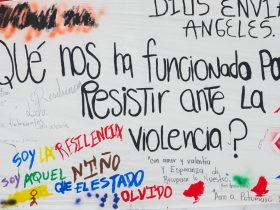 DIOS ENVIA
ANGELES.
QUÉ NOS ha funcionado Pa
Resistir ante la
violencia?
SOY LA RESILENCIA
SOY AQUEL NIÑO
QUE EL ESTADO
OLVIDO
"con amor y valentia
y Esperanza de
Recuperar lo Nuestro"
Amo a Putumayo